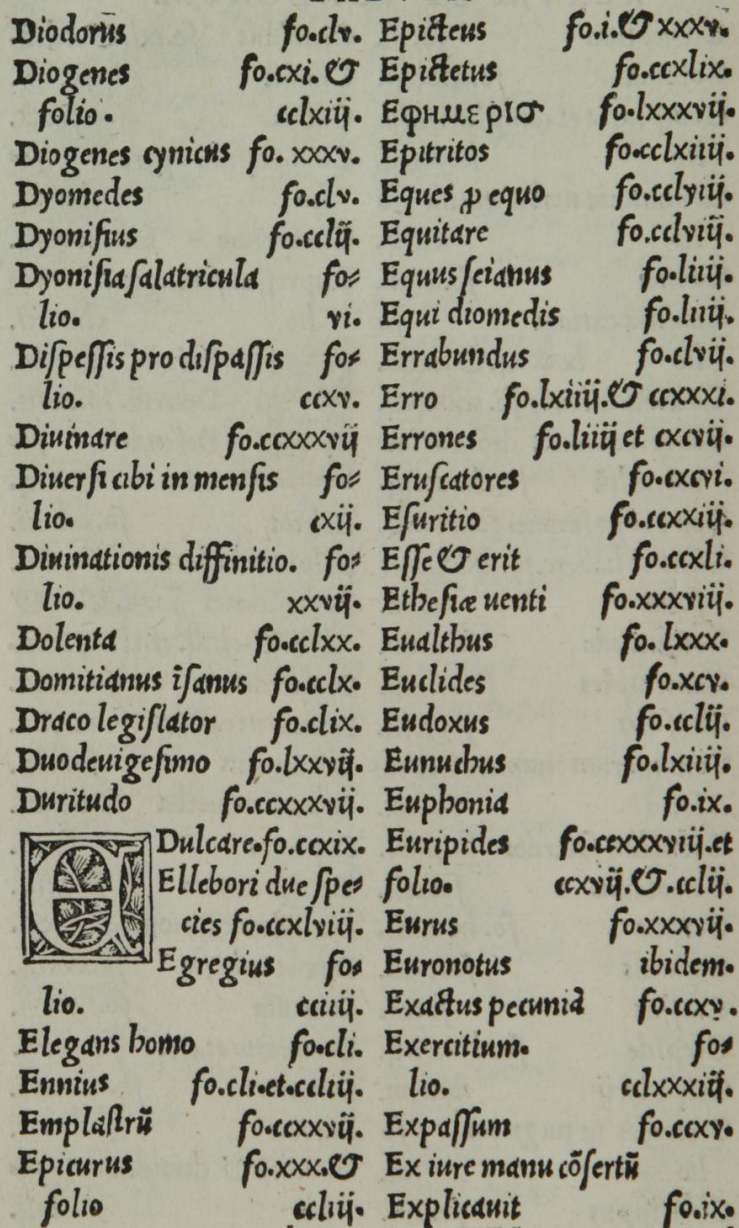 Diodorus fo.clv.
Diogenes fo.cxi.&
folio. cclxiij.
Diogenes cynicus fo. xxxv.
Dyomedes fo.clv.
Dyoniſius fo.cclij.
Dyoniſia ſalatricula fo⸗
lio. vi.
Diſpeſſis pro diſpaſſis fo⸗
lio. ccxv.
Diuinare fo.ccxxxvij
Diuerſi cibi in menſis fo⸗
lio. cxij.
Diuinationis diffinitio. fo⸗
lio. xxvij.
Dolenta fo.cclxx.
Domitianus īſanus fo.cclx.
Draco legiſlator fo.clix.
Duodeuigeſimo fo.lxxvij.
Duritudo fo.ccxxxvij.
EDulcare.fo.ccxix.
Ellebori due ſpe⸗
cies fo.ccxlviij.
Egregius fo⸗
lio. cciiij.
Elegans homo fo.cli.
Ennius fo.cli.et.ccliij.
Emplaſtrū fo.ccxxvij.
Epicurus fo.xxx.&
folio ccliij.
Epicteus fo.i.& xxxv.
Epictetus fo.ccxlix.
Εφημερισ fo.lxxxvij.
Epitritos fo.cclxiiij.
Eques ꝓ equo
Equitare fo.cclviij.
Equus ſeianus fo.liiij.
Equi diomedis fo.liiij.
Errabundus fo.clvij.
Erro fo.lxiiij.& ccxxxi.
Errones fo.liiij et cxcvij.
Eruſcatores fo.cxcvi.
Eſuritio fo.ccxxiij.
Eſſe & erit fo.ccxli.
Etheſiæ uenti fo.xxxviij.
Eualthus fo. lxxx.
Euclides fo.xcv.
Eudoxus fo.cclij.
Eunuchus fo.lxiiij.
Euphonia fo.ix.
Euripides fo.ccxxxviij.et
folio. ccxvij.&.cclij.
Eurus fo.xxxvij.
Euronotus ibidem.
Exactus pecuniā fo.ccxv.
Exercitium. fo⸗
lio. cclxxxiij.
Expaſſum fo.ccxv.
Ex iure manu cōſertū
Explicauit fo.ix.